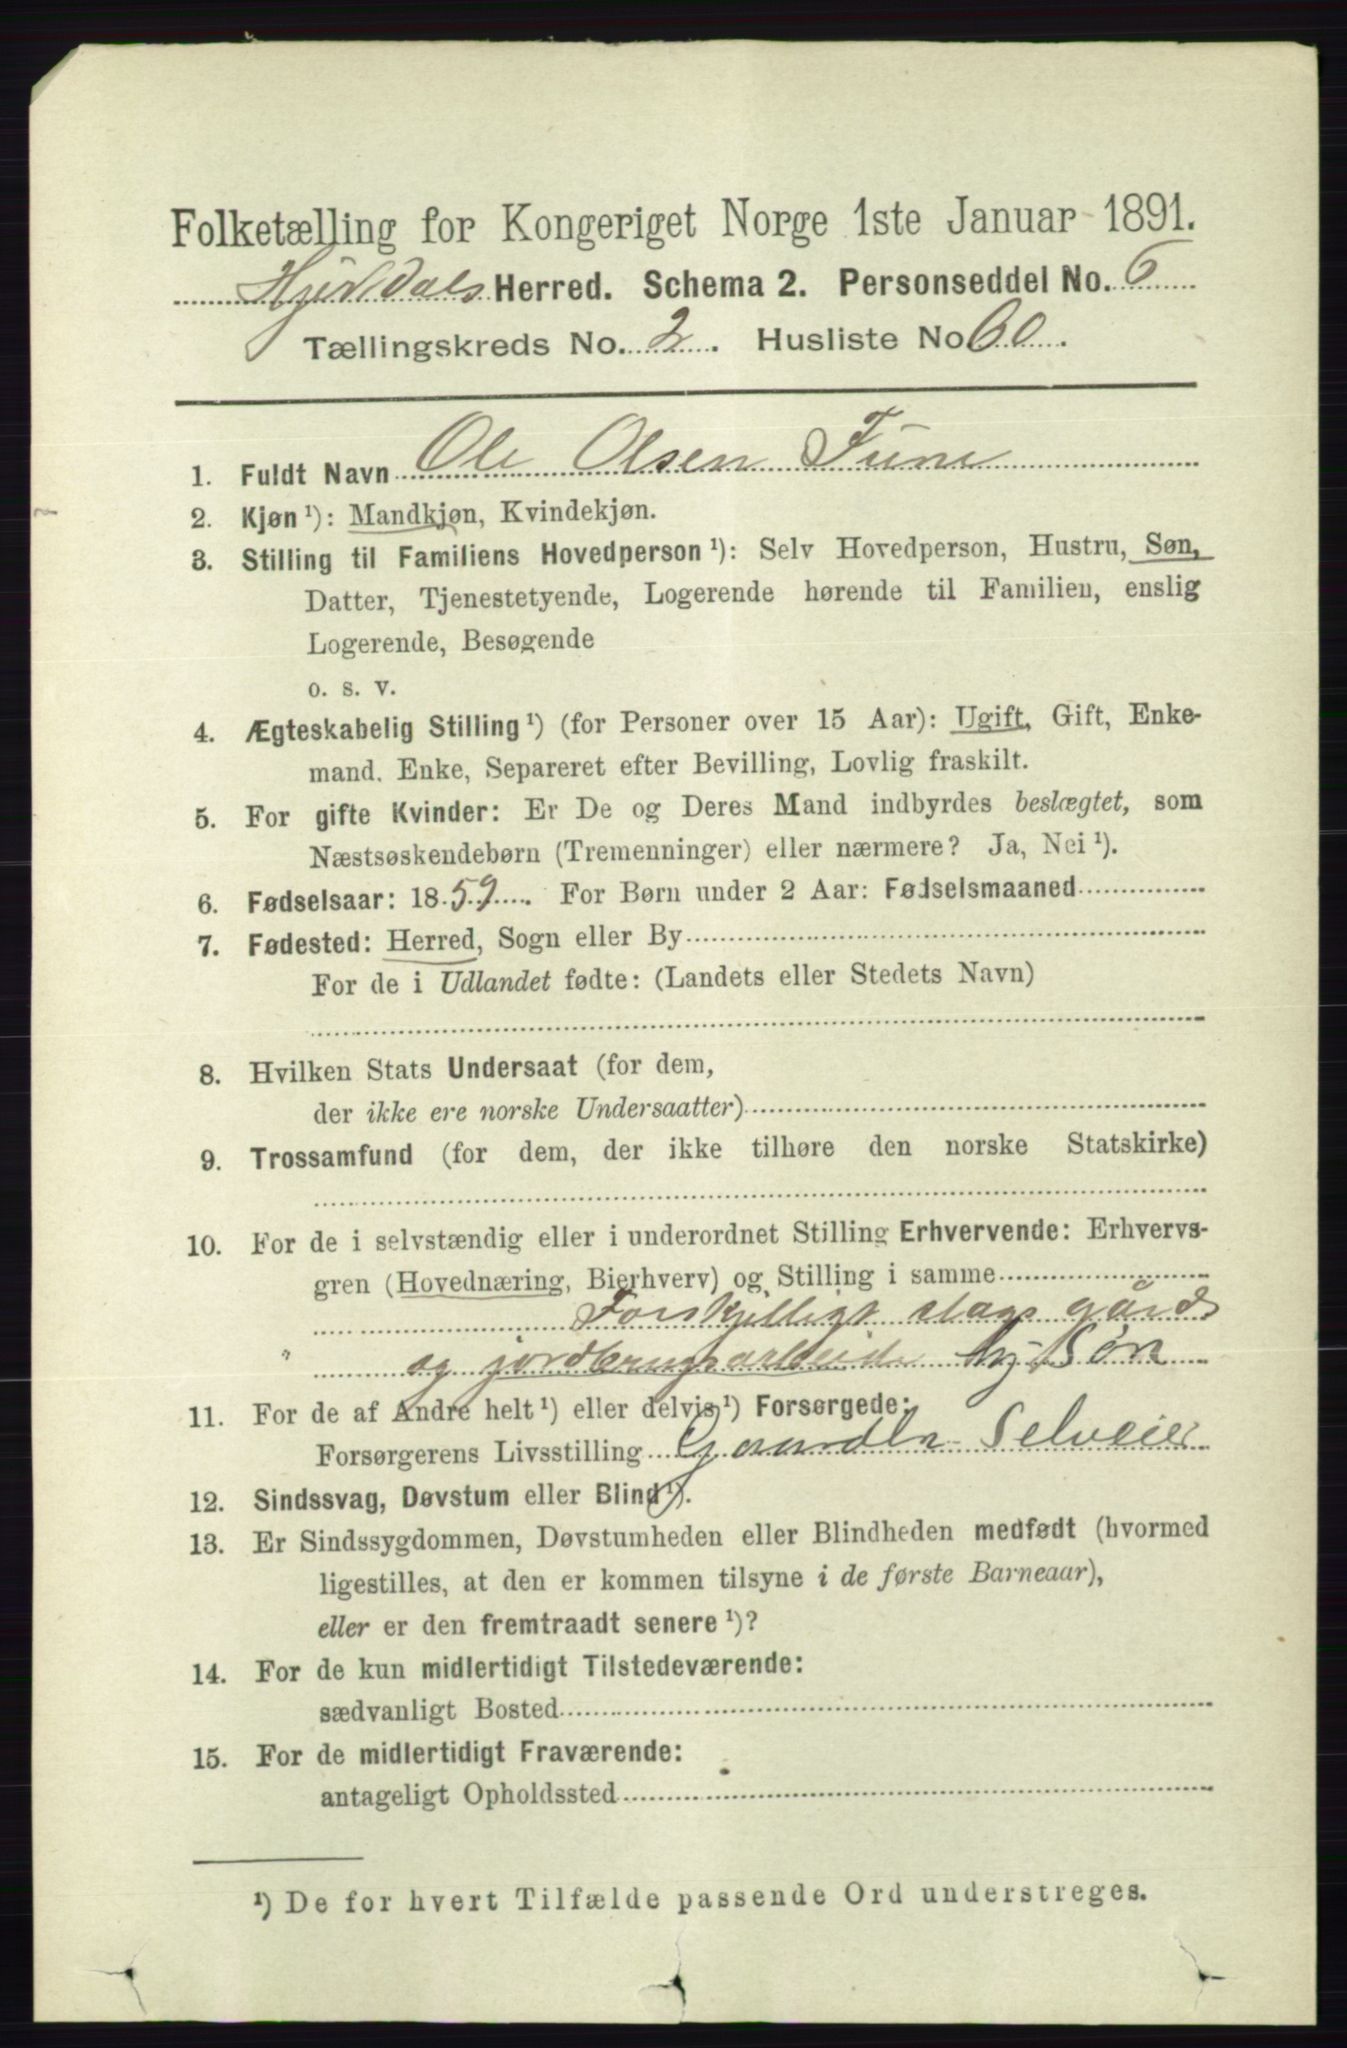 Folketælling for Kongeriget Norge 1ste Januar 1891.
Hjerdals Herred. Schema 2. Personseddel No. 6
Tællingskreds No. 2. Husliste No 60.
1. Fuldt Navn Ole Olsen Tune
2. Kjøn ¹): Mandkjøn, Kvindekjøn.
3. Stilling til Familiens Hovedperson ¹): Selv Hovedperson, Hustru, Søn,
Datter, Tjenestetyende, Logerende hørende til Familien, enslig
Logerende, Besøgende
o. s. v.
4. Ægteskabelig Stilling ¹) (for Personer over 15 Aar): Ugift, Gift, Enke-
mand. Enke, Separeret efter Bevilling, Lovlig fraskilt.
5. For gifte Kvinder: Er De og Deres Mand indbyrdes beslægtet, som
Næstsøskendebørn (Tremenninger) eller nærmere? Ja, Nei ¹).
6. Fødselsaar: 1859. For Børn under 2 Aar: Fødselsmaaned
7. Fødested: Herred, Sogn eller By
For de i Udlandet fødte: (Landets eller Stedets Navn)
8. Hvilken Stats Undersaat (for dem,
der ikke ere norske Undersaatter)
9. Trossamfund (for dem, der ikke tilhøre den norske Statskirke)
10. For de i selvstændig eller i underordnet Stilling Erhvervende: Erhvervs-
gren (Hovednæring, Bierhverv) og Stilling i samme
Forskjelligt slags gårds
og jordbrugsarbeide hj. Søn
11. For de af Andre helt ¹) eller delvis ¹) Forsørgede:
Forsørgerens Livsstilling Selveier
12. Sindssvag, Døvstum eller Blind ¹).
13. Er Sindssygdommen, Døvstumheden eller Blindheden medfødt (hvormed
ligestilles, at den er kommen tilsyne i de første Barneaar),
eller er den fremtraadt senere ¹)?
14. For de kun midlertidigt Tilstedeværende:
sædvanligt Bosted
15. For de midlertidigt Fraværende:
antageligt Opholdssted
¹) De for hvert Tilfælde passende Ord understreges.